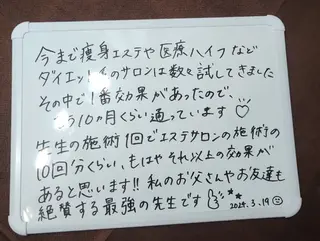 今まで痩身エステや医療ハイフなど
ダイエットのサロンは数々試してきました
その中で1番効果があったので、
もう10ヵ月くらい通っています♡
先生の施術1回でエステサロンの施術の
10回分くらい、もはやそれ以上の効果が
あると思います!!私のお父さんやお友達も
絶賛する最強の先生です
2024.3.19